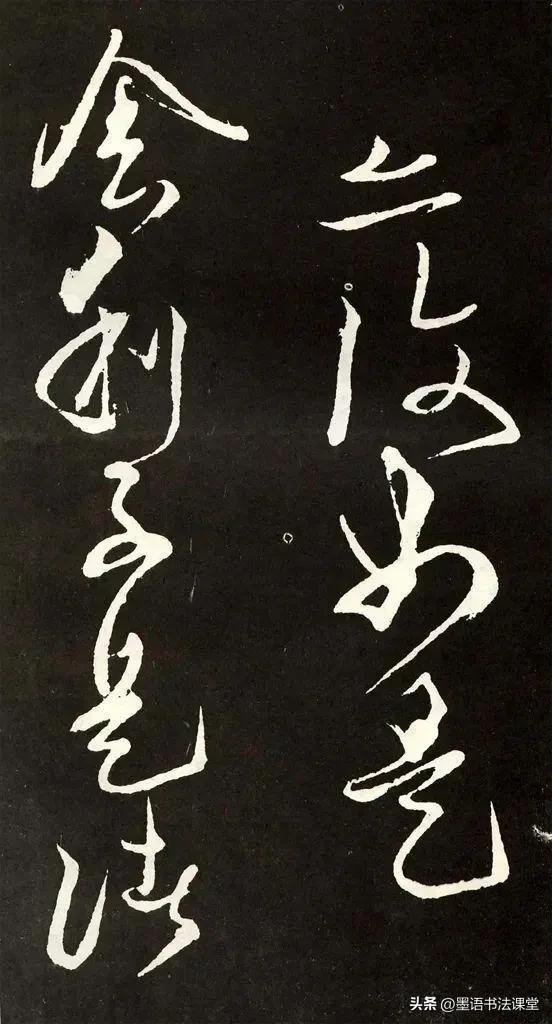 亦復如是
舍利子是諸
头条 @墨语书法课堂